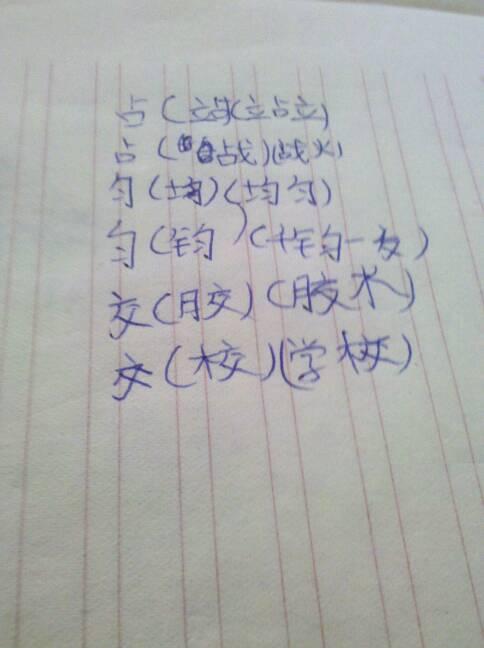 占(站)(站立)
占(战)(战火)
匀(均)(均匀)
匀(钧)(千钧一发)
交(胶)(胶水)
交(校)(学校)